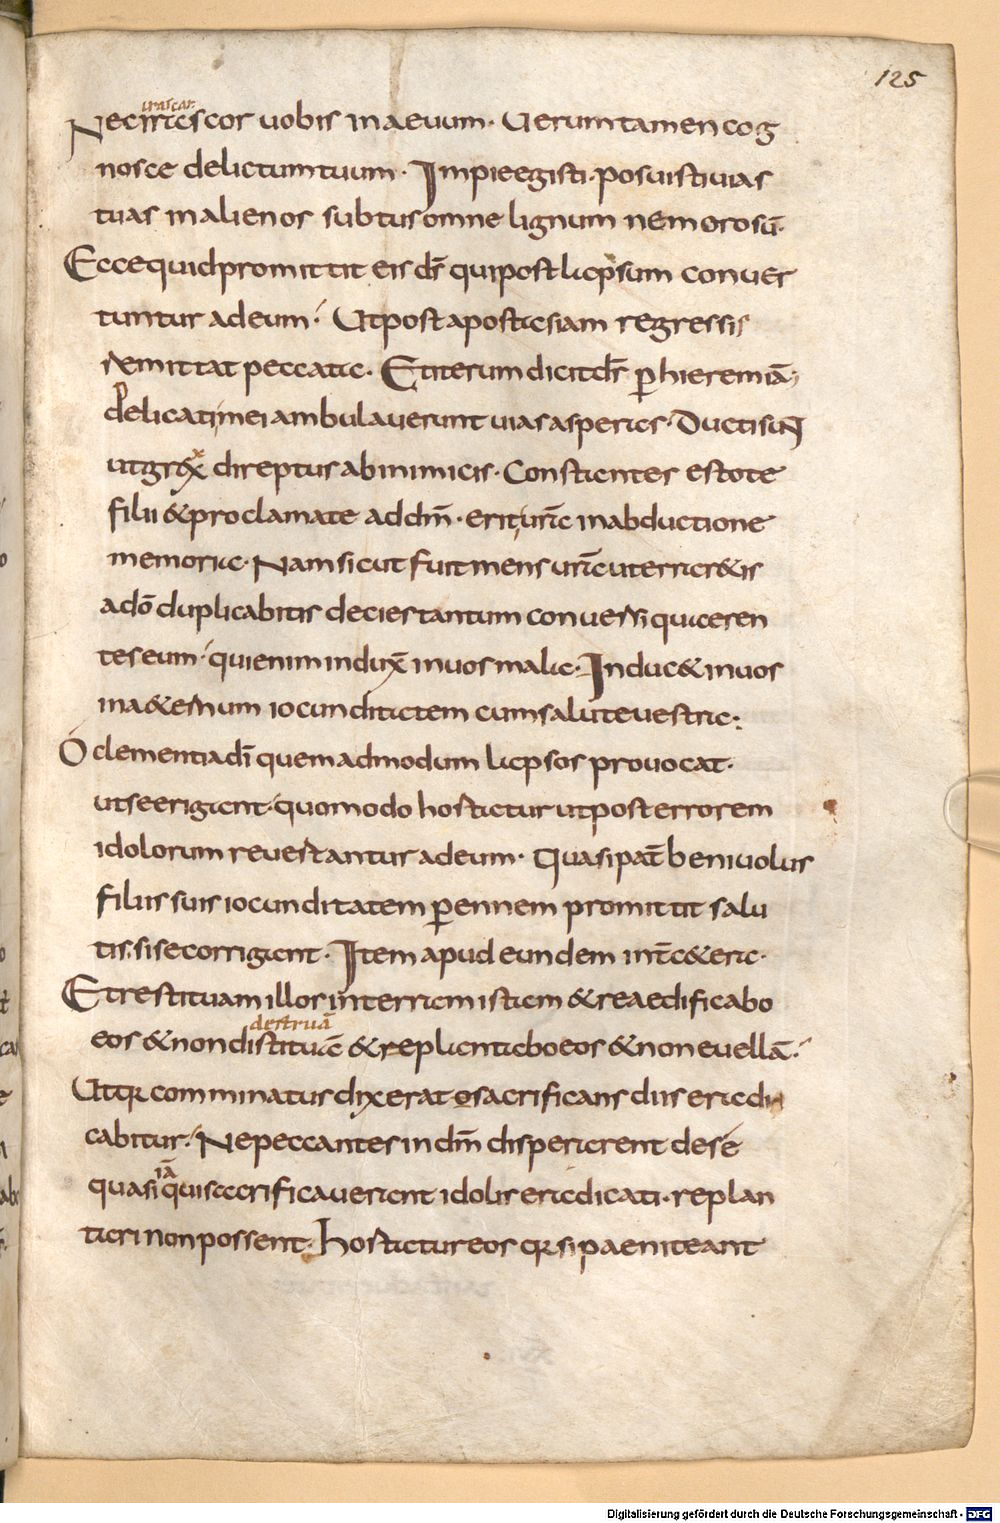 125
irascar
Nec irascor uobis in aeuum. Uerum tamen cog
nosce delictum tuum. Impie egisti. posuisti uias
tuas in alienos subtus omne lignum nemorosū.
Ecce quid promittit eis d̄s qui post lapsum conuer
tuntur ad eum. Ut post apostasiam regressis
remittat peccata. Et iterum dicit d̄s ꝑ hieremiā;
Delicati mei ambulauerunt uias asperas. Ducti sunt
ut grex direptus ab inimicis. Constantes estote
filii & proclamate ad dm̄. erit ur̄a in abductione
memoria. Nam sicut fuit mens ur̄a ut erraretis
a dō duplicabitis decies tantum conuersi quaeren
tes eum. qui enim indux̄ in uos mala. Induc& in uos
in a&ernum iocunditatem cum salute uestra.
O clementia dī quemadmodum lapsos prouocat.
ut se erigant. quomodo hortatur ut post errorem
idolorum reuertantur ad eum. Quasi pat̄ beniuolus
filiis suis iocunditatem ꝑennem promittit salu
tis. si se corrigant. Item apud eundem int̄ c&era.
Et restituam illos in terram istam & reaedificabo
destruā
eos & non distituā & replantabo eos & non euellā.
Utq; comminatus dixerat q sacrificans diis eradi
cabitur. Ne peccantes in dm̄ disperarent de se
iā
quasi qui sacrificauerant idolis eradicati. replan
tari non possent. Hortatur eos q; si paeniteant
Digitalisierung gefördert durch die Deutsche Forschungsgemeinschaft - DFG